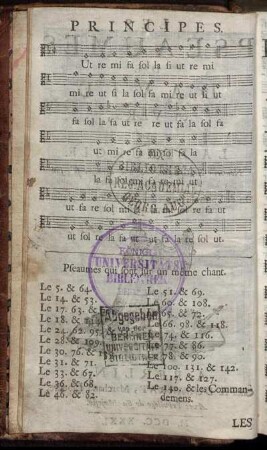 PRINCIPES.
Ut re mi fa sol la fi ut re mi
mi re ut fi la sol fa mi re ut fi ut
fa sol la fa ut re re ut fa la sol fa
ut mi re fa mi sol fa la
la fa sol mi fa re mi ut
ut fa re sol mi re fa ut
ut sol re la fa ut ut fa la re sol ut.
Pseaumes qui sont sur un même chant.
Le 5. & 64.
Le 14. & 53.
Le 17. 63. &
Le 18. &
Le 24. 62. 95.
Le 28. & 109.
Le 30. 76. &
Le 31. & 71.
Le 33. & 67.
Le 36. & 68.
Le 46. & 82.
Le 51. & 69.
Le 60. & 108.
Le 65. & 72.
Le 66. 98. & 118.
Le 74. & 116.
Le 77. & 86.
Le 78. & 90.
Le 100. 131. & 142.
Le 117. & 127.
Le 140. & les Comman-
demens.
LES
UNIVERSITÄTS
BIBLIOTHEK